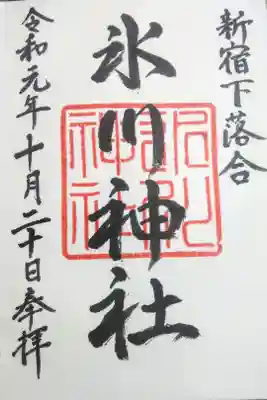 新宿下落合
氷川神社
令和元年十月二十日奉拝